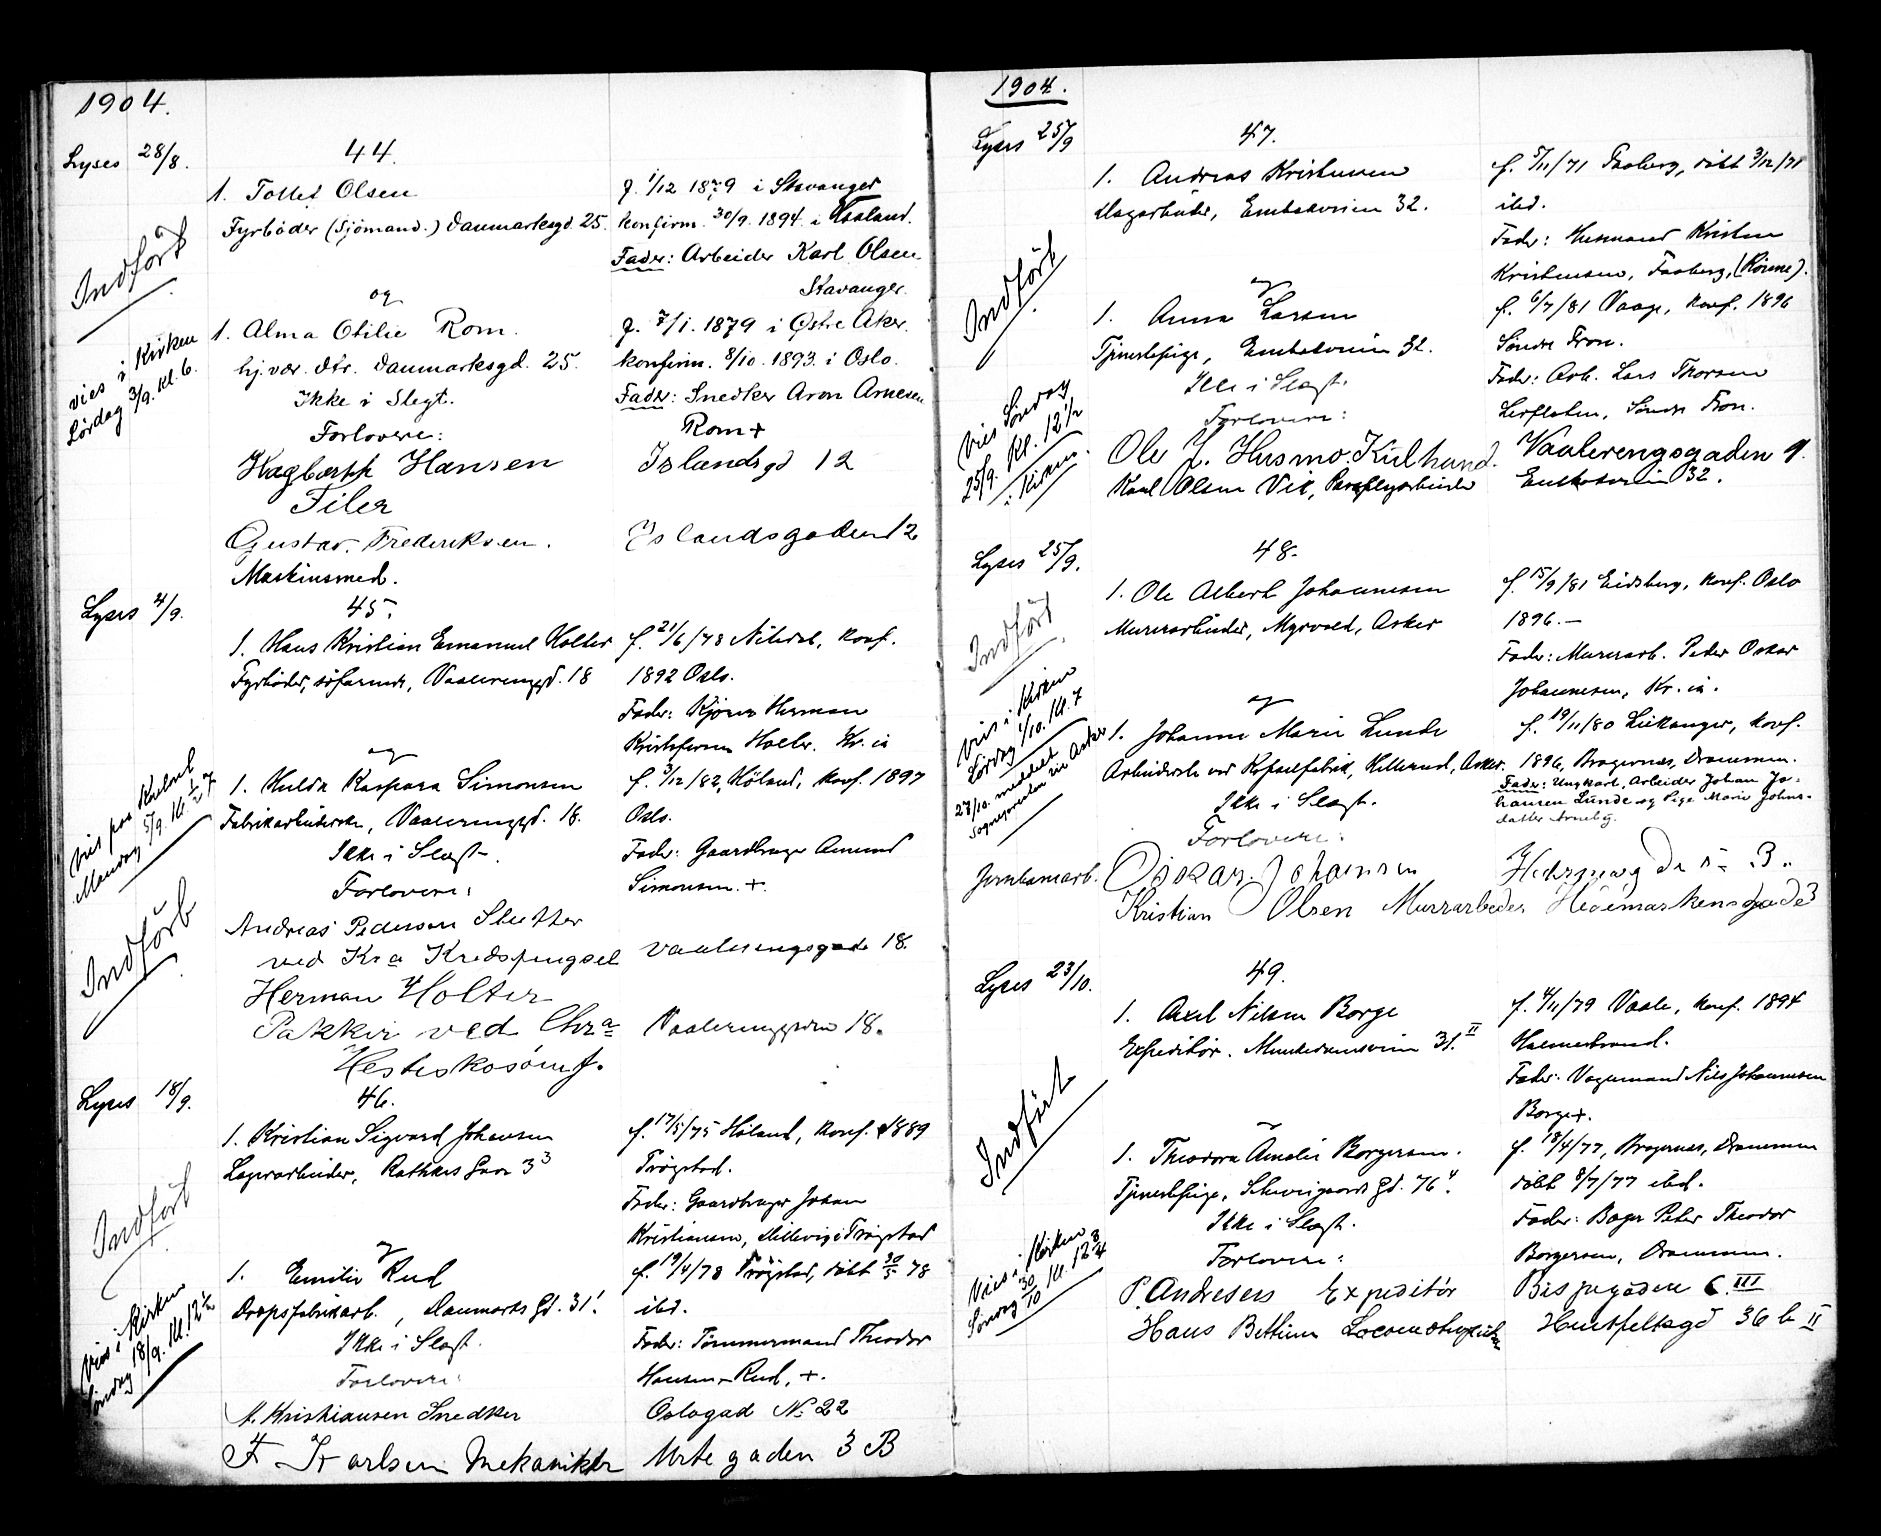 1904.
Lyses 28/8.
44.
1. Tollef Olsen
f. 1/12 1879 i Stavanger
Fyrböder (Sjömand.) Danmarksgd. 25.
konfirm. 30/9. 1894. i
Fader: Arbeider Karl Olsen
Stavanger.
Indført
og
1. Alma Otilie Rom.
f. 7/1. 1879 i Østre Aker.
hj. vær. dtr. Danmarksgd. 25.
konfirm. 8/10. 1893. i Oslo.
Ikke i Slegt.
Fader: Snedker Aron Arnesen
Rom +
vies i Kirken
Lørdag 3/9. Kl. 6.
Forlovere:
Hagbarth Hansen
Islandsgd 12
Filer
Gustav. Frederiksen.
Islandsgaden 12
Maskinsmed.
Lyses 4/9.
45.
1. Hans Kristian Emanuel Holter
f. 21/6/73 Nitedal, konf.
Fyrböder, söfarende, Vaalerenggd. 18
1892 Oslo.
Fader: Kjører Herman
Kristofersen Holter. Kr.ia
og
1. Hulda Kaspara Simonsen
f. 9/12/82, Höland, konf. 1897
Fabrikarbeiderske, Vaalerenggd. 18.
Oslo.
Ikke i Slægt.
Fader: Gaardbruger Amund
Forlovere:
Simonsen. +.
vies paa Kontoret
Mandag 5/9. Kl. 7
Indført
Andreas Pedersen Slutter
ved Kra Kredsfængsel
Vaalerengsgade 18.
Herman Holter
Pakker ved Chra
Vaalerenggaden 18.
Hesteskosömf.
Lyses 18/9.
46.
1. Kristian Sigvard Johansen
f. 17/5/75 Höland, konf. 1889
Lagerarbeider, Rathkes Gade 3 3
Trögstad.
Fader: Gaardbruger Johan
Kristiansen, Trögstad
Indført
og
1. Emilie Rud
f. 19/4/78 Trögstad, döbt 30/5 78
Dropsfabrikarb., Danmarks Gd. 31.
ibd.
Ikke i Slægt.
Fader: Tömmermand Theodor
Forlovere:
Hansen Rud, +.
Vies i Kirken
Søndag 18/9. Kl. 12 1/2
M. Kristiansen Snedker
Oslogad No 22
F Karlsen Mekaniker
Urtegaden 3 B
1904.
Lyses 25/9
47.
1. Andreas Kristensen
f. 5/11/71 Faaberg, döbt 3/12/71
Lagerarbeider, Enebakveien 32.
ibd.
Fader: Husmand Kristen
Kristensen, Faaberg,
Indført
og
1. Anna Larsen
f. 6/7/81 Vaage, konf. 1896
Tjenestepige, Enebakveien 32.
Søndre Fron.
Ikke i Slægt.
Fader: Arb. Lars Thorsen
Forlovere:
Lerfloten, Søndre Fron.
Vies Søndag
25/9. Kl. 12 1/2
i Kirken.
Ole J. Husmo. Kulhand.
Vaalerengsgaden 9.
Karl Olsen Vik, Paraplyarbeider
Enebakveien 32.
Lyses 25/9.
48.
1. Ole Albert Johannesen
f. 15/9/81 Eidsberg, konf. Oslo
Murerarbeider, Myrvold, Asker
1896. —
Fader: Murerarb. Peder Oskar
Johannesen, Kr.ia.
Indført
og
1. Johanne Marie Lunde
f. 19/11/80 Leikanger, konf.
Arbeiderske ved Kapselfabrik, Asker.
1896, Bragernes, Drammen.
Ikke i Slægt.
Fader: Ungkarl, Arbeider Johan Jo-
hansen Lunde og Pige Marie Johns-
datter Arneby.
Vies i Kirken
Lördag 1/10. Kl. 7
27/10. meddelt
Sognepresten i Asker
Forlovere:
Jernbanearb. Oskar. Johansen
Hedemarksgade 3.
Kristian Olsen Murrarbeder
Hedemarkensgade 3
Lyses 23/10.
49.
1. Axel Nilsen Borge
f. 4/11/79 Vaale, konf. 1894
Expeditör. Munkedamsveien 31. II
Holmestrand.
Fader: Vognmand Nils Johannesen
Borge +.
Indført
1. Theodora Amalie Borgersen.
f. 13/4/77, Bragernes, Drammen
Tjenestepige, Schweigaards Gd. 76 4.
döbt 8/7/77 ibd.
Ikke i Slægt.
Fader: Bager Peter Theodor
Forlovere:
Borgersen, Drammen.
Vies i Kirken
Søndag 30/10 Kl. 12 3/4
P. Andresen Expeditör
Bispegaden 6. III
Hans Bettum
36 b II